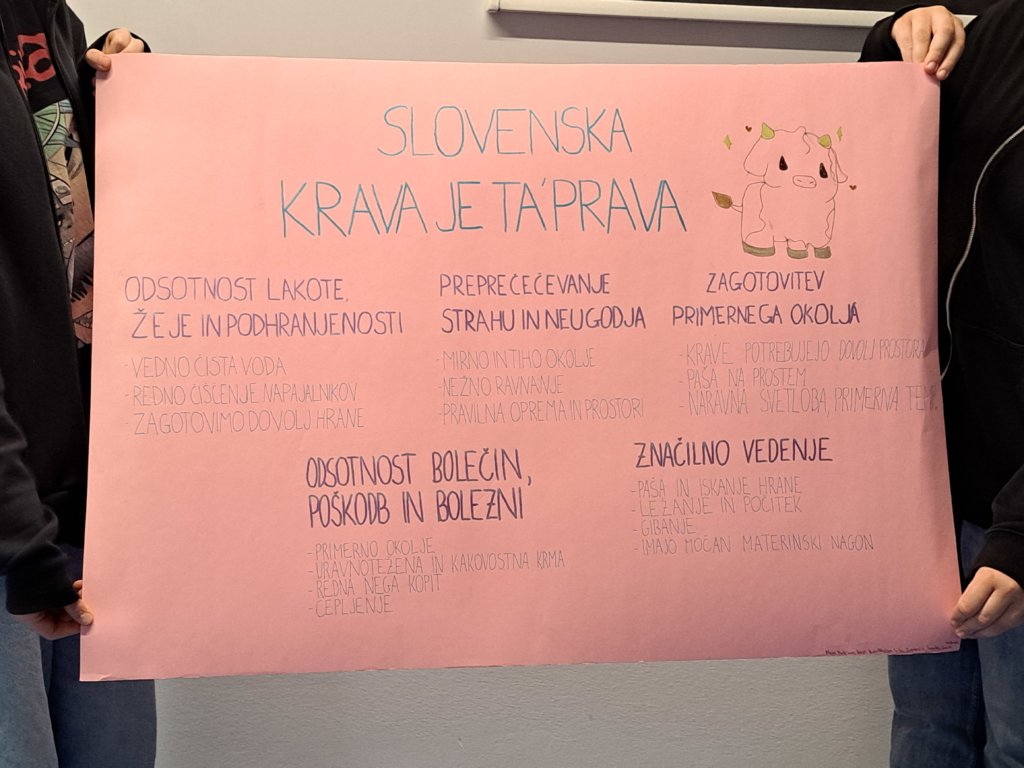 SLOVENSKA
KRAVA JE TA'PRAVA
ODSOTNOST LAKOTE,
ŽEJE IN PODHRANJENOSTI
- VEDNO ČISTA VODA
- REDNO ČIŠČENJE NAPAJALNIKOV
- ZAGOTOVIMO DOVOLJ HRANE
PREPREČEČEVANJE
STRAHU IN NEUGODJA
- MIRNO IN TIHO OKOLJE
- NEŽNO RAVNANJE
- PRAVILNA OPREMA IN PROSTORI
ZAGOTOVITEV
PRIMERNEGA OKOLJA
- KRAVE POTREBUJEJO DOVOLJ PROSTORA
- PAŠA NA PROSTEM
- NARAVNA SVETLOBA, PRIMERNA TEMP.
ODSOTNOST BOLEČIN,
POŠKODB IN BOLEZNI
- PRIMERNO OKOLJE
- URAVNOTEŽENA IN KAKOVOSTNA KRMA
- REDNA NEGA KOPIT
- CEPLJENJE
ZNAČILNO VEDENJE
- PAŠA IN ISKANJE HRANE
- LEŽANJE IN POČITEK
- GIBANJE
- IMAJO MOČAN MATERINSKI NAGON